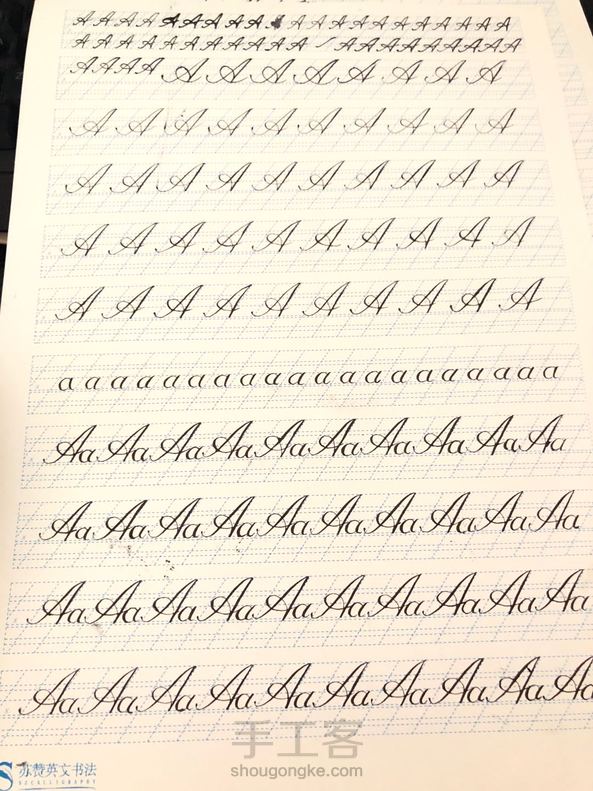 A A A A A A A A A A A A A A A A A A A
A A A A A A A A A A A / A A A A A A A A A
A A A A A A A A A A A A
A A A A A A A A A A
A A A A A A A A A A
A A A A A A A A A A
A A A A A A A A A A
a a a a a a a a a a a a a a a a a a a a
Aa Aa Aa Aa Aa Aa Aa Aa Aa Aa
Aa Aa Aa Aa Aa Aa Aa Aa Aa Aa
Aa Aa Aa Aa Aa Aa Aa Aa Aa Aa
Aa Aa Aa Aa Aa Aa Aa Aa Aa Aa
手工客
shougongke.com
S 苏赞英文书法
SZCALLIGRAPHY